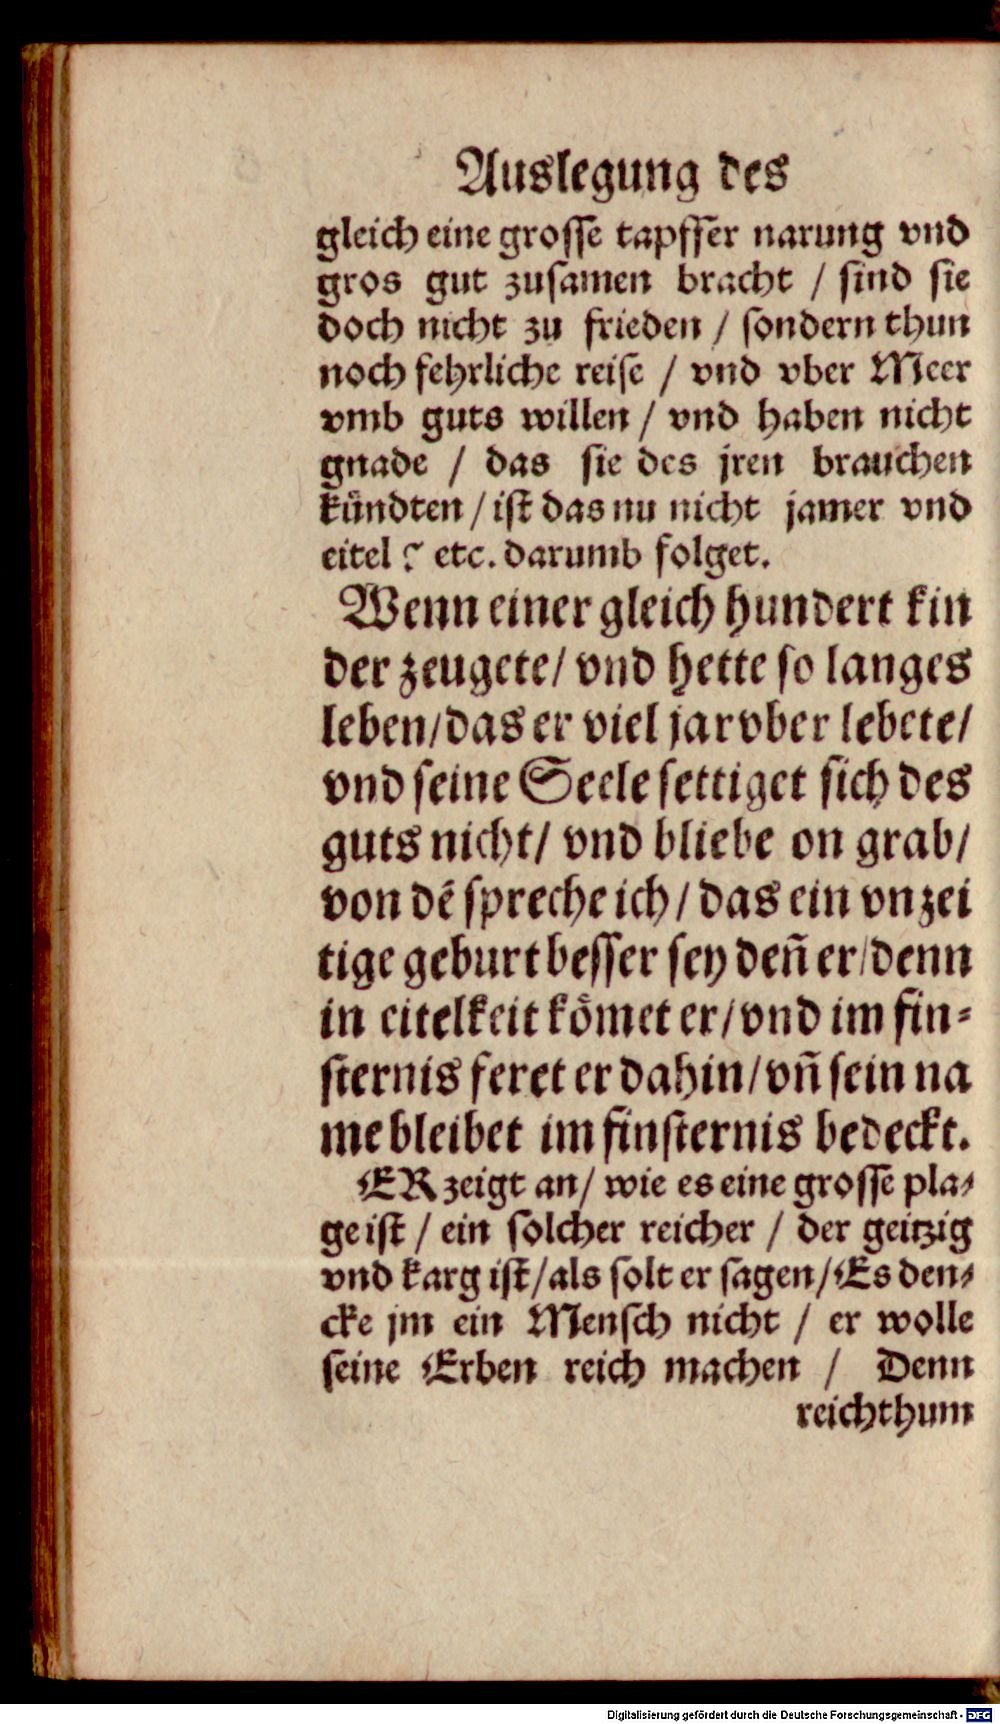 Auslegung des
gleich eine grosse tapffer narung vnd
gros gut zusamen bracht / sind sie
doch nicht zu frieden / sondern thun
noch fehrliche reise / vnd vber Meer
vmb guts willen / vnd haben nicht
gnade / das sie des jren brauchen
kündten / ist das nu nicht jamer vnd
eitel ? etc. darumb folget.
Wenn einer gleich hundert kin
der zeugete / vnd hette so langes
leben / das er viel jar vber lebete /
vnd seine Seele settiget sich des
guts nicht / vnd bliebe on grab /
von dē spreche ich / das ein vnzei
tige geburt besser sey deñ er / denn
in eitelkeit kōmet er / vnd im fin-
sternis feret er dahin / vñ sein na
me bleibet im finsternis bedeckt.
ER zeigt an / wie es eine grosse pla-
ge ist / ein solcher reicher / der geitzig
vnd karg ist / als solt er sagen / Es den-
cke jm ein Mensch nicht / er wolle
seine Erben reich machen / Denn
reichthum
Digitalisierung gefördert durch die Deutsche Forschungsgemeinschaft - DFG